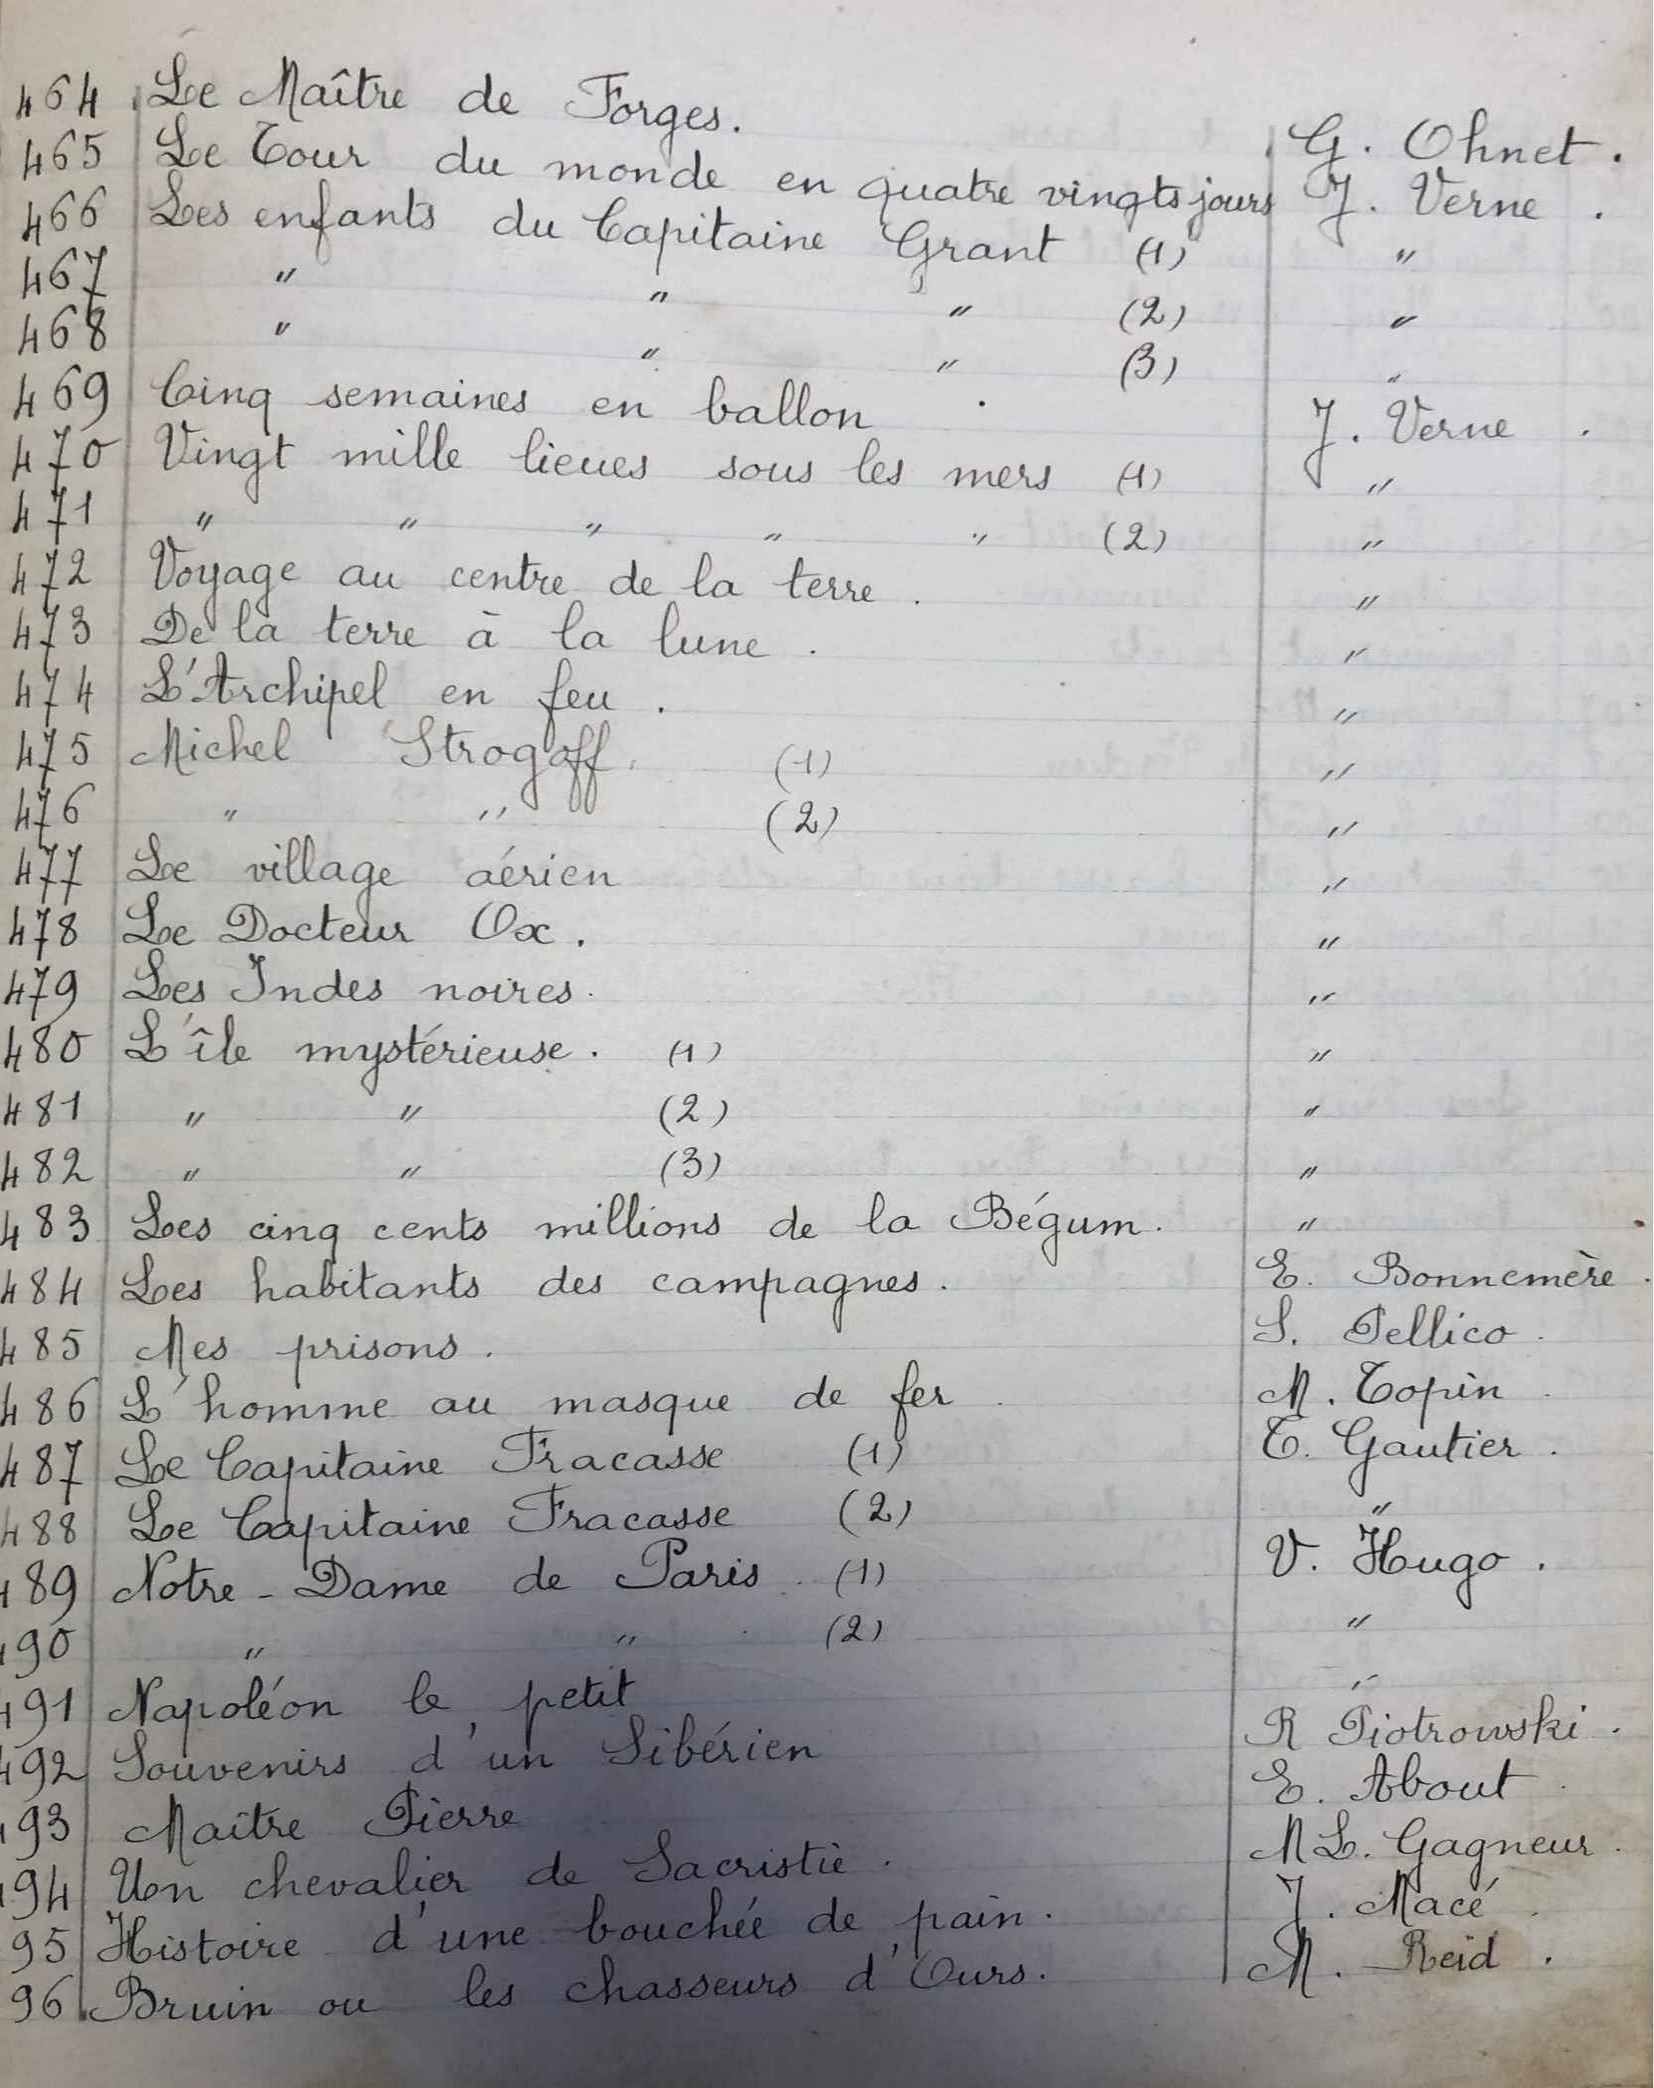 464 Le Maître de Forges. G. Ohnet.
465 Le Tour du monde en quatre vingts jours J. Verne.
466 Les enfants du Capitaine Grant (1) "
467 " " " (2) "
468 " " " (3) "
469 Cinq semaines en ballon. J. Verne.
470 Vingt mille lieues sous les mers (1) "
471 " " " " " (2) "
472 Voyage au centre de la terre. "
473 De la terre à la lune. "
474 L'Archipel en feu. "
475 Michel Strogoff. (1) "
476 " " (2) "
477 Le village aérien "
478 Le Docteur Ox. "
479 Les Indes noires. "
480 L'île mystérieuse. (1) "
481 " " (2) "
482 " " (3) "
483 Les cinq cents millions de la Bégum. "
484 Les habitants des campagnes. E. Bonnemère.
485 Mes prisons. S. Pellico.
486 L'homme au masque de fer. M. Topin.
487 Le Capitaine Fracasse (1) T. Gautier.
488 Le Capitaine Fracasse (2) "
489 Notre-Dame de Paris. (1) V. Hugo.
490 " " (2) "
491 Napoléon le petit "
492 Souvenirs d'un Sibérien R Piotrowski.
493 Maître Pierre E. About.
494 Un chevalier de Sacristie. M L. Gagneur.
95 Histoire d'une bouchée de pain. J. Macé.
96 Bruin ou les chasseurs d'Ours. M. Reid.